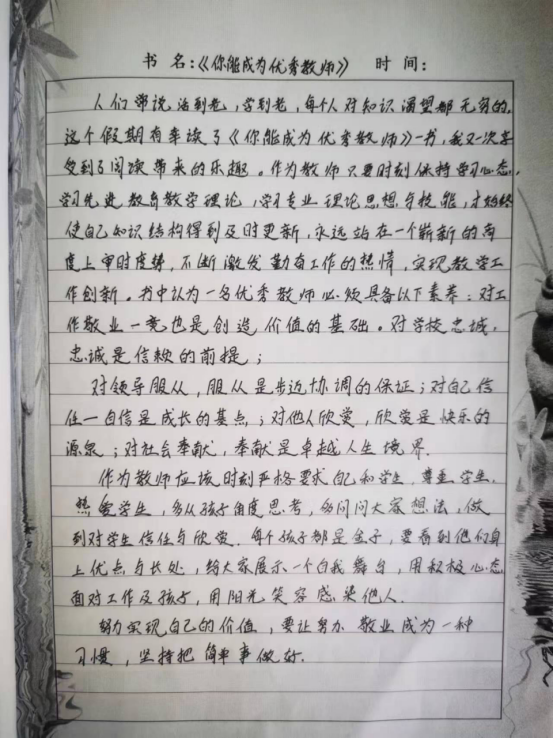 书 名：《你能成为优秀教师》 时 间：
人们常说活到老，学到老，每个人对知识渴望都无穷的，
这个假期有幸读了《你能成为优秀教师》一书，我又一次享
受到了阅读带来的乐趣。作为教师只要时刻保持学习心态，
学习先进教育教学理论，学习专业理论思想与技能，才始终
使自己知识结构得到及时更新，永远站在一个崭新的高
度上审时度势，不断激发勤奋工作的热情，实现教学工
作创新。书中认为一名优秀教师必须具备以下素养：对工
作敬业一竞也是创造价值的基础。对学校忠诚，
忠诚是信赖的前提；
对领导服从，服从是步近协调的保证；对自己信
任一自信是成长的基点；对他人欣赏，欣赏是快乐的
源泉；对社会奉献，奉献是卓越人生境界.
作为教师应该时刻严格要求自己和学生，尊重学生，
热爱学生，多从孩子角度思考，多问问大家想法，做
到对学生信任与欣赏.每个孩子都是金子，要看到他们身
上优点与长处，给大家展示一个自我舞台，用积极心态
面对工作及孩子，用阳光笑容感染他人.
努力实现自己的价值，要让努力 敬业成为一种
习惯，坚持把简单事做好.